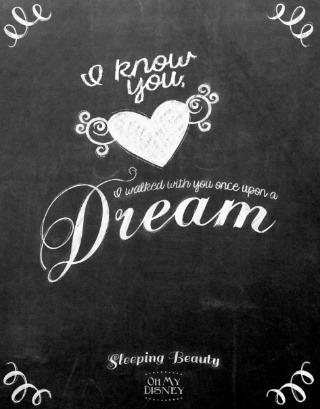 I know
you,
I walked with you once upon a
Dream
Sleeping Beauty
OH MY
DISNEY